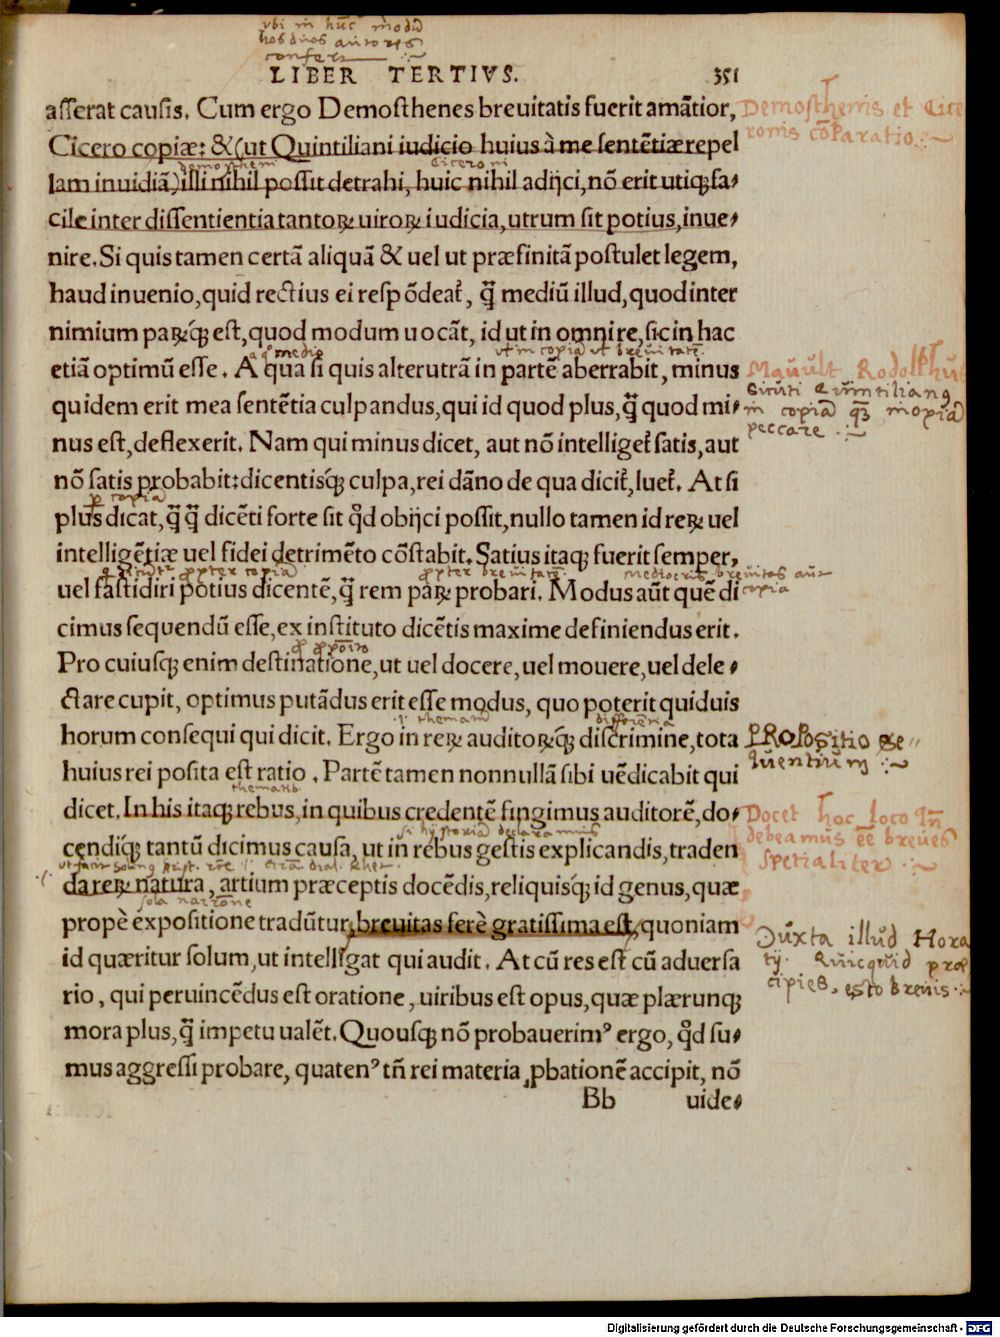 vbi in hūc modū
hos duos autores
confert
LIBER TERTIVS. 351
asserat causis. Cum ergo Demosthenes breuitatis fuerit amātior,
Cicero copiæ: & (ut Quintiliani iudicio huius à me sentētiæ repel
lam inuidiā) illi nihil possit detrahi, huic nihil adijci, nō erit utiqꝫ fa⸗
cile inter dissentientia tantoꝝ uiroꝝ iudicia, utrum sit potius, inue⸗
nire. Si quis tamen certā aliquā & uel ut præfinitā postulet legem,
haud inuenio, quid rectius ei respōdeat᷑, q̄̃ mediū illud, quod inter
nimium paꝝqꝫ est, quod modum uocāt, id ut in omni re, sic in hac
etiā optimū esse. A qua si quis alterutrā in partē aberrabit, minus
quidem erit mea sentētia culpandus, qui id quod plus, q̄̃ quod mi⸗
nus est, deflexerit. Nam qui minus dicet, aut nō intelliget᷑ satis, aut
nō satis probabit: dicentisqꝫ culpa, rei dāno de qua dicit᷑, luet᷑. At si
plus dicat, q̄̃ q̄̃ dicēti forte sit qd̄ obijci possit, nullo tamen id reꝝ uel
intelligētiæ uel fidei detrimēto cōstabit. Satius itaqꝫ fuerit semper,
uel fastidiri potius dicentē, q̄̃ rem paꝝ probari. Modus aūt quē di
cimus sequendū esse, ex instituto dicētis maxime definiendus erit.
Pro cuiusqꝫ enim destinatione, ut uel docere, uel mouere, uel dele⸗
ctare cupit, optimus putādus erit esse modus, quo poterit quiduis
horum consequi qui dicit. Ergo in reꝝ auditoꝝqꝫ discrimine, tota
huius rei posita est ratio. Partē tamen nonnullā sibi uēdicabit qui
dicet. In his itaqꝫ rebus, in quibus credentē fingimus auditorē, do⸗
cendiqꝫ tantū dicimus causa, ut in rebus gestis explicandis, traden
da reꝝ natura, artium præceptis docēdis, reliquisqꝫ id genus, quæ
propè expositione tradūtur, breuitas ferè gratissima est, quoniam
id quæritur solum, ut intelligat qui audit. At cū res est cū aduersa
rio, qui peruincēdus est oratione, uiribus est opus, quæ plærunqꝫ
mora plus, q̄̃ impetu ualēt. Quousqꝫ nō probauerimꝰ ergo, qd̄ su⸗
mus aggressi probare, quatenꝰ tn̄ rei materia ꝓbationē accipit, nō
Bb uide⸗
Demosthenis et Cice
ronis cōparatio
demostheni
Ciceroni
a q° medio
vt in copia vt breuitate
Mauult Rodolphus
sicuti Quintilianꝰ
in copia qꝫ inopia
peccare
p copia
propter copia
propter breuitate
mediocris breuitas aut
copia
differētia
PROPositio se⸗
quentium
thematib
si hystoria declaramus
Docet hoc loco qn̄
debeamus eē breues
spetialiter
sola narrōne
Juxta illud Hora
tij. Quicquid præ
cipies, esto breuis
Digitalisierung gefördert durch die Deutsche Forschungsgemeinschaft - DFG